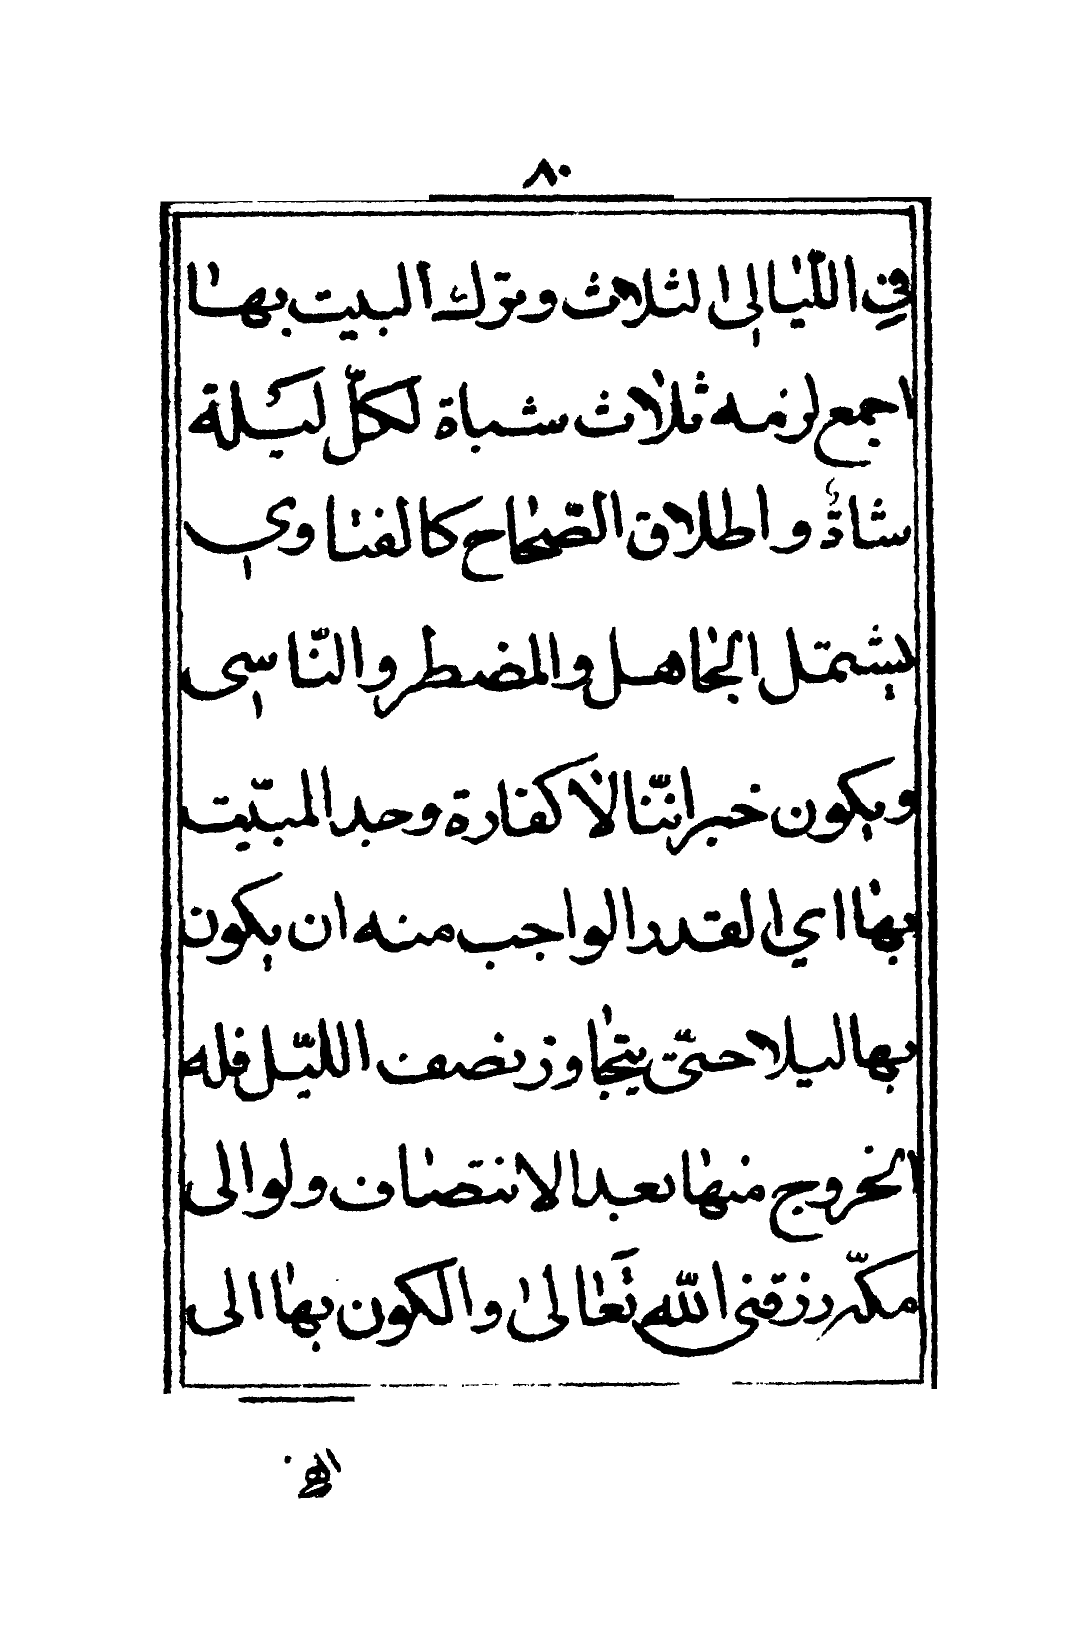 ٨٠
في اللّيالي الثلاث وترك البيت بها
اجمع لزمه ثلاث شياة لكلّ ليلة
شاةٌ واطلاق الصّحاح كالفتاوي
يشمل الجاهل والمضطر والنّاسي
ويكون خبر انّنا لا كفارة وحد المبّيت
بها اي القدر الواجب منه ان يكون
بها ليلا حتّى يتجاوز نصف اللّيل فله
الخروج منها بعد الانتصاف ولو الى
مكّه رزقني اللّه تعالى والكون بها الى